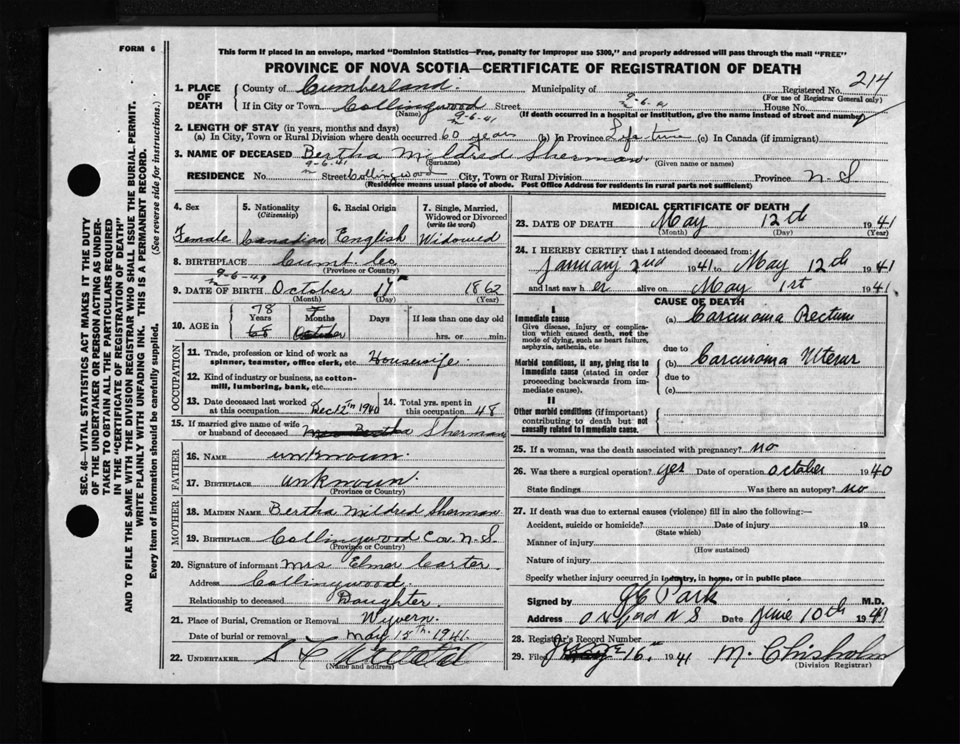 FORM 6
This form if placed in an envelope, marked "Dominion Statistics—Free, penalty for improper use $300," and properly addressed will pass through the mail "FREE"
PROVINCE OF NOVA SCOTIA—CERTIFICATE OF REGISTRATION OF DEATH
214
1. PLACE OF DEATH County of Cumberland. Municipality of Registered No.
(For use of Registrar General only)
If in City or Town Collingwood Street House No.
(Name) (If death occurred in a hospital or institution, give the name instead of street and number)
9-6-41
2. LENGTH OF STAY (in years, months and days)
(a) In City, Town or Rural Division where death occurred 60 years (b) In Province Life time (c) In Canada (if immigrant)
3. NAME OF DECEASED Bertha Mildred Sherman
(Surname) (Given name or names)
9-6-41
RESIDENCE No. Street Collingwood City, Town or Rural Division Province N.S
(Residence means usual place of abode. Post Office Address for residents in rural parts not sufficient)
4. Sex 5. Nationality (Citizenship) 6. Racial Origin 7. Single, Married, Widowed or Divorced (write the word)
Female Canadian English Widowed
8. BIRTHPLACE Cumb. Co.
(Province or Country)
9. DATE OF BIRTH October 17 1862
(Month) (Day) (Year)
78 7
10. AGE in Years Months Days If less than one day old
68 October hrs. or min.
OCCUPATION
11. Trade, profession or kind of work as spinner, teamster, office clerk, etc Housewife.
12. Kind of industry or business, as cotton-mill, lumbering, bank, etc.
13. Date deceased last worked at this occupation Dec 12th 1940 14. Total yrs. spent in this occupation 48
15. If married give name of wife or husband of deceased Mrs Bertha Sherman
FATHER
16. Name unknown.
17. BIRTHPLACE unknown.
(Province or Country)
MOTHER
18. MAIDEN NAME Bertha Mildred Sherman
19. BIRTHPLACE Collingwood Co. N.S
(Province or Country)
20. Signature of informant Mrs Elmar Carter.
Address Collingwood.
Relationship to deceased Daughter.
21. Place of Burial, Cremation or Removal Wyvern.
Date of burial or removal May 15th. 1941.
22. UNDERTAKER
(Name and address)
MEDICAL CERTIFICATE OF DEATH
23. DATE OF DEATH May 12th 1941
(Month) (Day) (Year)
24. I HEREBY CERTIFY that I attended deceased from:
January 2nd 1941 to May 12th 1941
and last saw her alive on May 1st 1941
CAUSE OF DEATH
I
Immediate cause (a) Carcinoma Rectum
Give disease, injury or complication which caused death, not the mode of dying, such as heart failure, asphyxia, asthenia, etc
due to
Morbid conditions, if any, giving rise to immediate cause (stated in order proceeding backwards from immediate cause).
(b) Carcinoma Uterus
due to
(c)
II
Other morbid conditions (if important) contributing to death but not causally related to immediate cause.
25. If a woman, was the death associated with pregnancy? no
26. Was there a surgical operation? yes Date of operation October 1940
State findings Was there an autopsy? no
27. If death was due to external causes (violence) fill in also the following:—
Accident, suicide or homicide? Date of injury 19
(State which)
Manner of injury
(How sustained)
Nature of injury
Specify whether injury occurred in industry, in home, or in public place
Signed by Park M.D.
Address Oxford N S Date June 10th 1941
28. Registrar's Record Number
29. Filed June 16th 1941 M. Chisholm
(Division Registrar)
SEC. 46—VITAL STATISTICS ACT MAKES IT THE DUTY
OF THE UNDERTAKER OR PERSON ACTING AS UNDER-
TAKER TO OBTAIN ALL THE PARTICULARS REQUIRED
IN THE "CERTIFICATE OF REGISTRATION OF DEATH"
AND TO FILE THE SAME WITH THE DIVISION REGISTRAR WHO SHALL ISSUE THE BURIAL PERMIT.
WRITE PLAINLY WITH UNFADING INK. THIS IS A PERMANENT RECORD.
Every item of information should be carefully supplied. (See reverse side for instructions.)